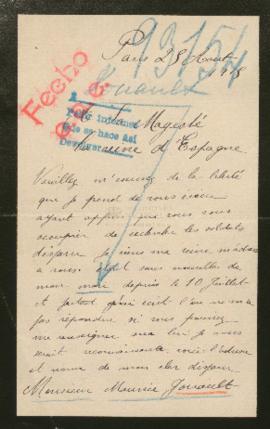 Paris 28 Aout
1915
93154
Fecho
Pide informes
que se hace Así
Sa Magesté
La reine d'Espagne
Veuillez m'excusez de la liberté
que je prend de vous écrire
ayant appris que vous vous
occupiez de recherche les soldats
disparu je viens ma reine m'adresser
a vous. étant sans nouvelles de
mon mari depuis le 10 Juillet
et partout j'ai écrit l'on ne ma
pas répondre si vous pouvez
me renseigner sur lui je vous
serait reconnaissante voici l'adresse
et nom de mon cher disparu
Monsieur Maurice Jouault